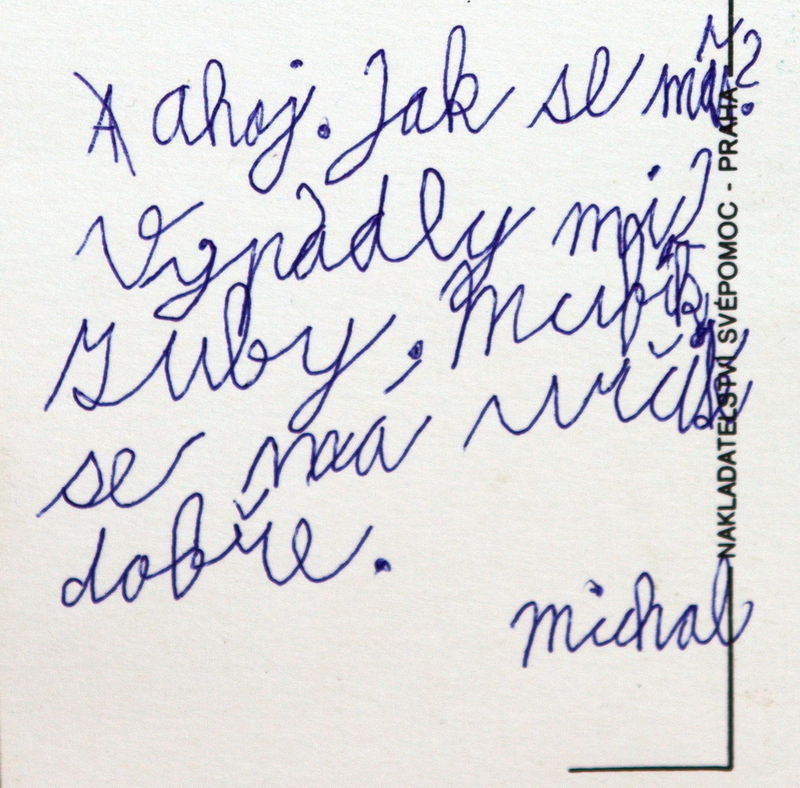 Ahoj. Jak se máš?
Vypadly mi
zuby.
se má
dobře.
Michal
NAKLADATELSTVÍ SVÉPOMOC - PRAHA